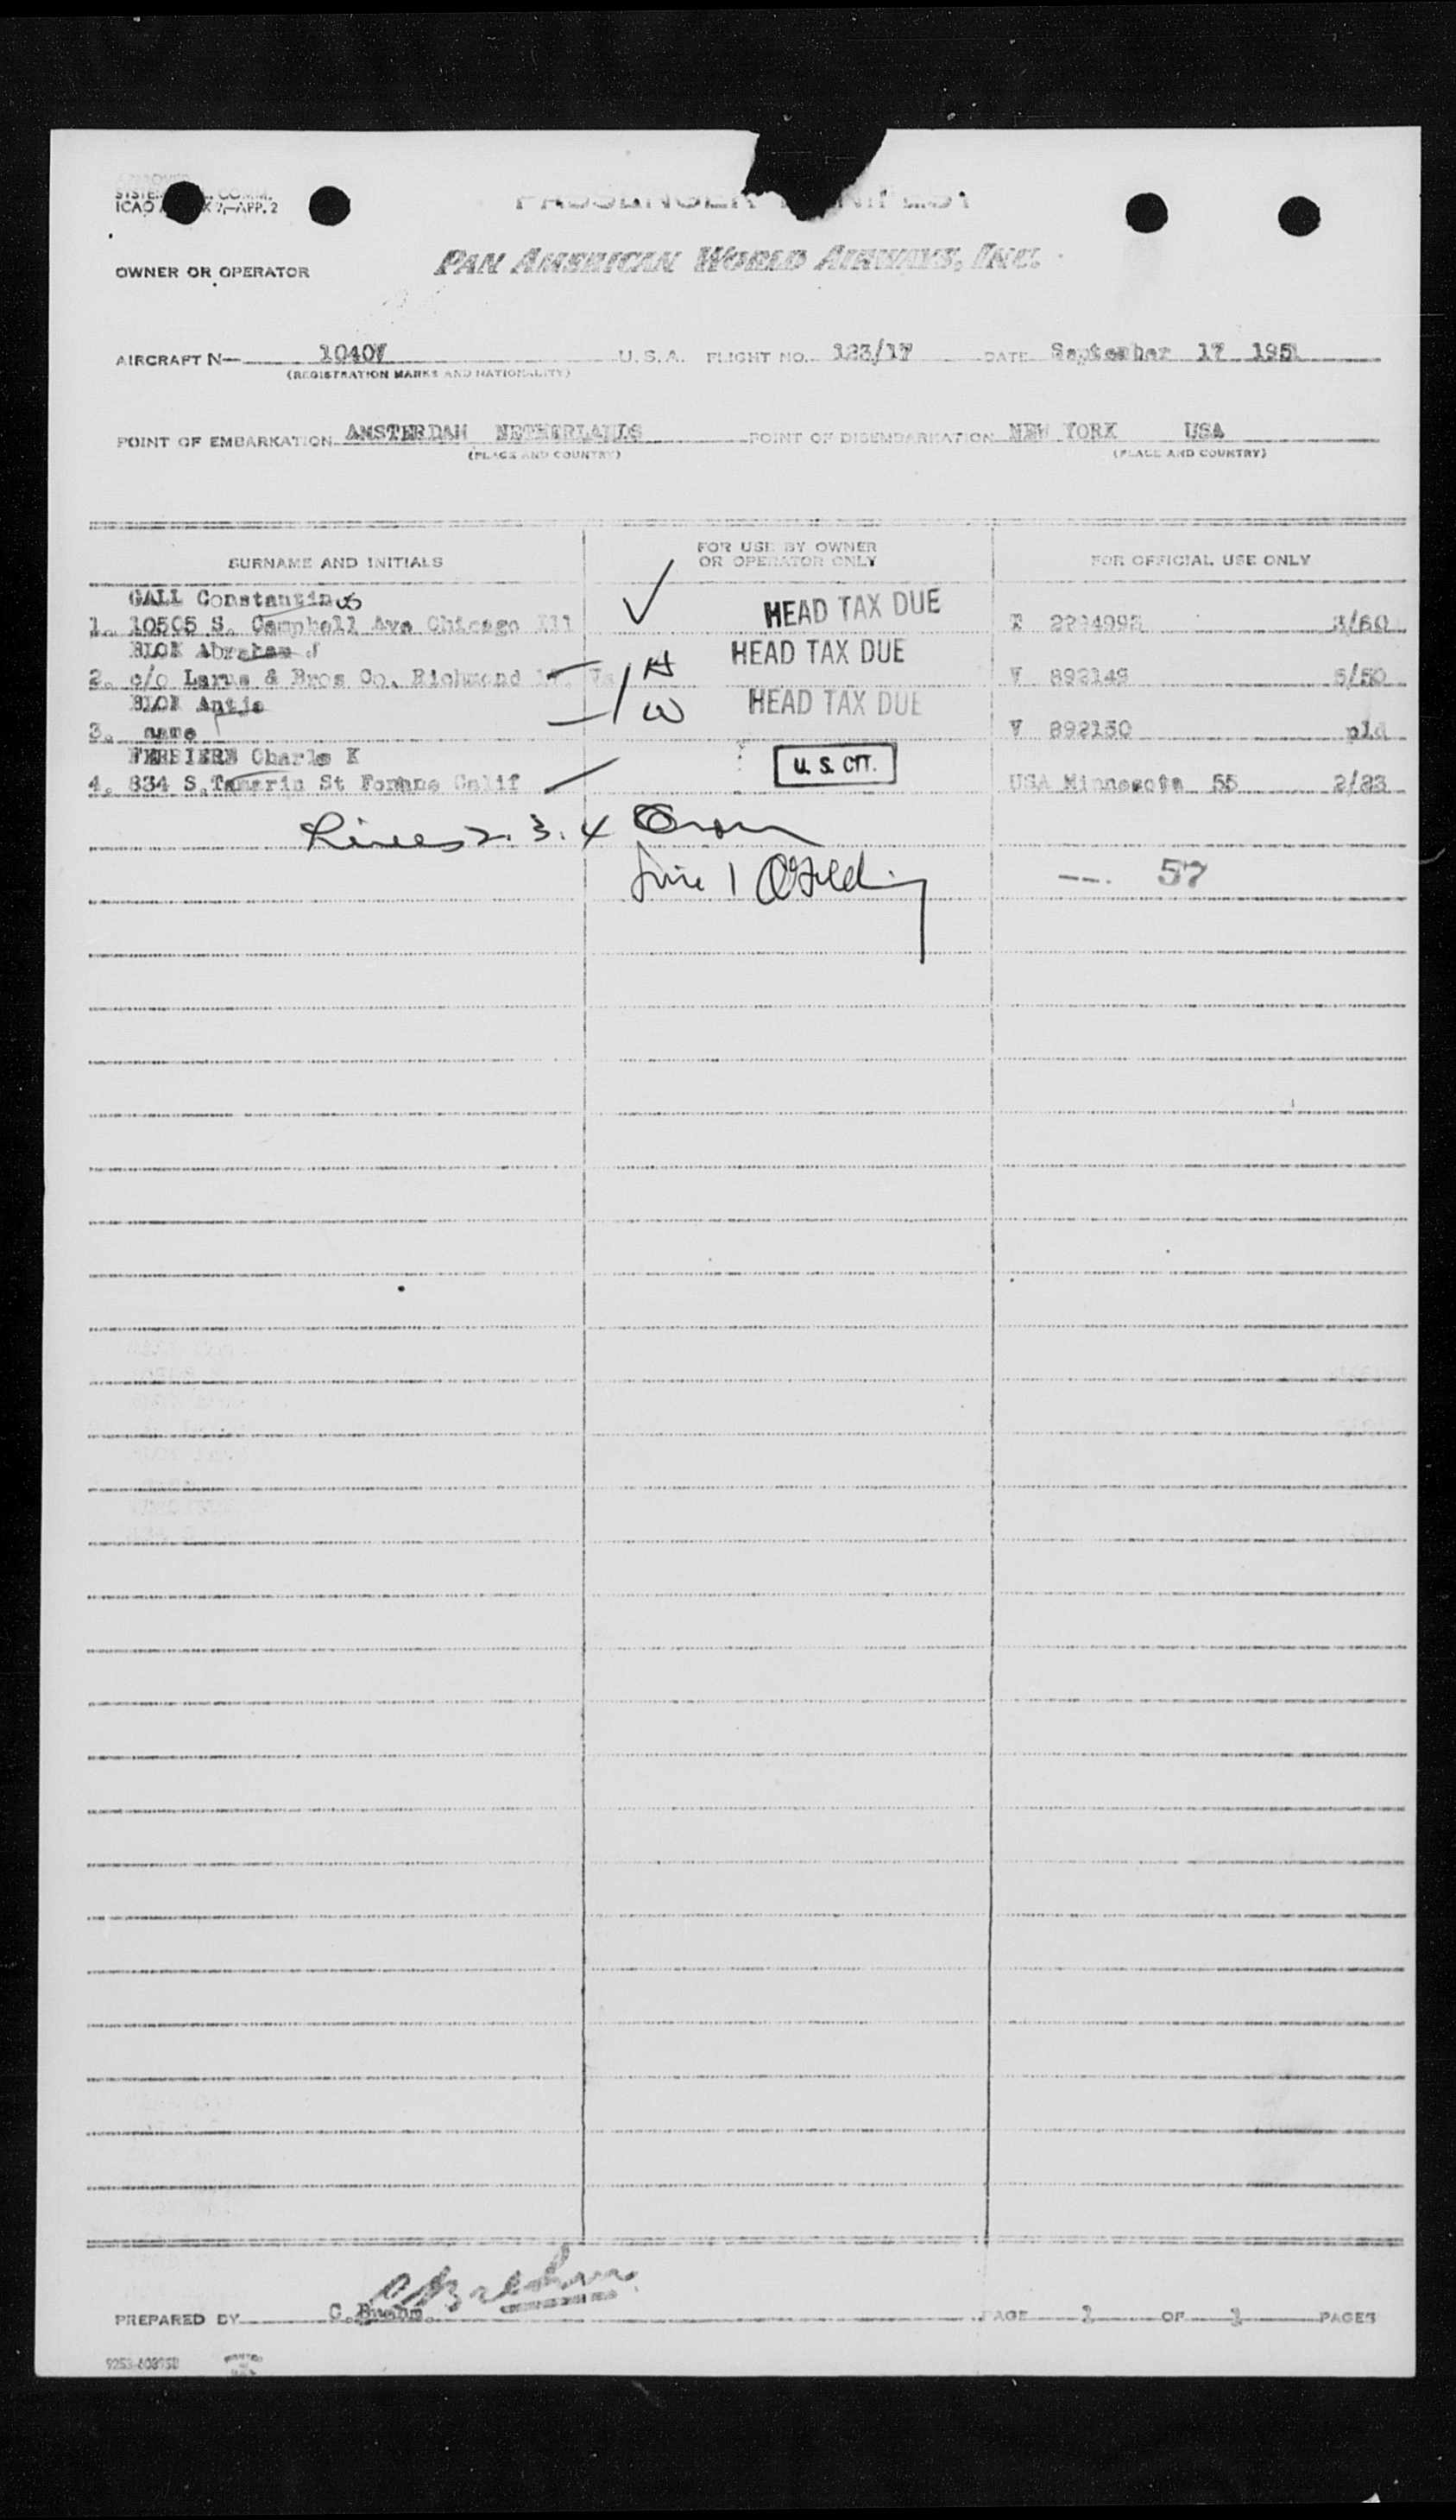 APPROVED
ICAO APP. 2
PASSENGER MANIFEST
OWNER OR OPERATOR PAN AMERICAN WORLD AIRWAYS, INC.
AIRCRAFT N— 10407 U.S.A. FLIGHT NO. 123/17 DATE September 17 1951
(REGISTRATION MARKS AND NATIONALITY)
POINT OF EMBARKATION AMSTERDAM NETHERLANDS POINT OF DISEMBARKATION NEW YORK USA
(PLACE AND COUNTRY) (PLACE AND COUNTRY)
SURNAME AND INITIALS FOR USE BY OWNER OR OPERATOR ONLY FOR OFFICIAL USE ONLY
GALL Constantinus
1. 10505 S. Campbell Ave Chicago Ill HEAD TAX DUE 3/60
BLOK Abraham J HEAD TAX DUE
2. c/o Larus & Bros Co. Richmond Va H V 892149 5/50
BLOK Antje HEAD TAX DUE
3. same W V 892150 pld
FERRIERE Charles K
4. 834 S. Tamarin St Calif U.S. CIT. USA Minnesota 55 2/23
Lines 2. 3. 4
Line 1
57
PREPARED BY C. PAGE 1 OF 1 PAGES